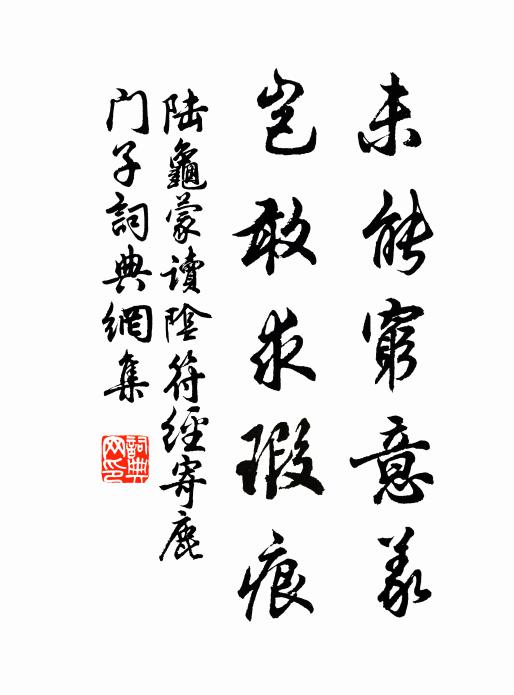 未能窮意義
岂敢求瑕痕
陆龜蒙讀陰符經寄鹿
门子詞典網集
詞典網印